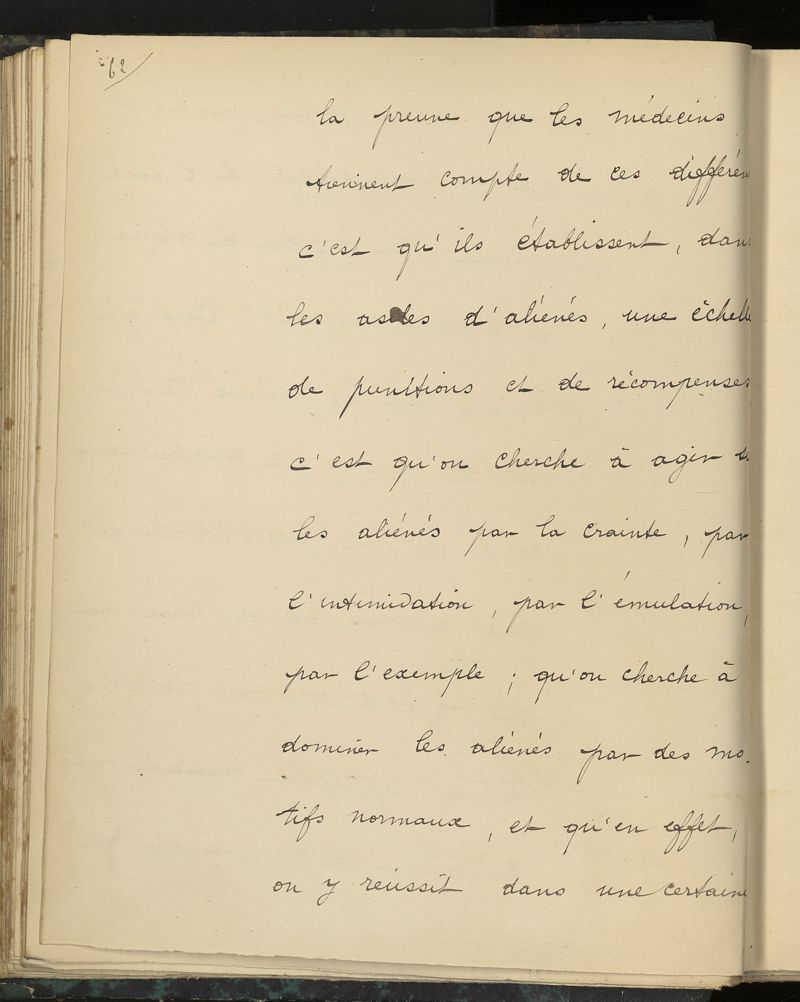 62
la preuve que les médecins
tiennent compte de ces différen
c'est qu'ils établissent, dans
les asiles d'aliénés, une échelle
de punitions et de récompenses
c'est qu'on cherche à agir
les aliénés par la crainte, par
l'intimidation, par l'émulation,
par l'exemple ; qu'on cherche à
dominer les aliénés par des mo-
tifs normaux, et qu'en effet,
on y réussit dans une certaine